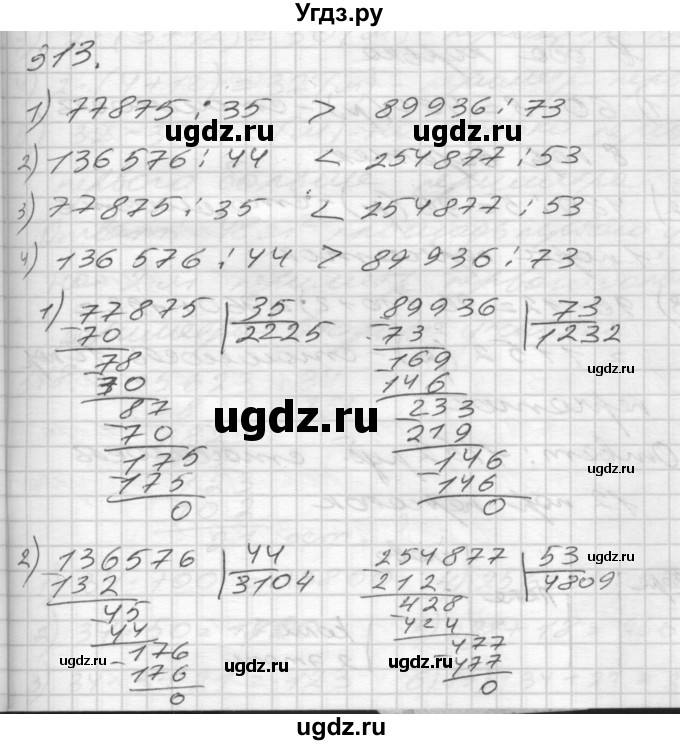 Угдз.ру
913.
1) 77875 : 35 > 89936 : 73
ugdz.ru ugdz.ru
2) 136 576 : 44 < 254877 : 53
3) 77875 : 35 < 254877 : 53
4) 136 576 : 44 > 89 936 : 73
1) 77875 | 35 89936 | 73
70 2225 73 1232
78 169 ugdz.ru
70 146
87 233
ugdz.ru
70 219
175 146
175 146 ugdz.ru
0 0
2) 136576 | 44 254877 | 53 ugdz.ru
132 3104 212 4809
45 428
44 424
176 477
ugdz.ru 176 ugdz.ru 477 ugdz.ru
0 0
ugdz.ru